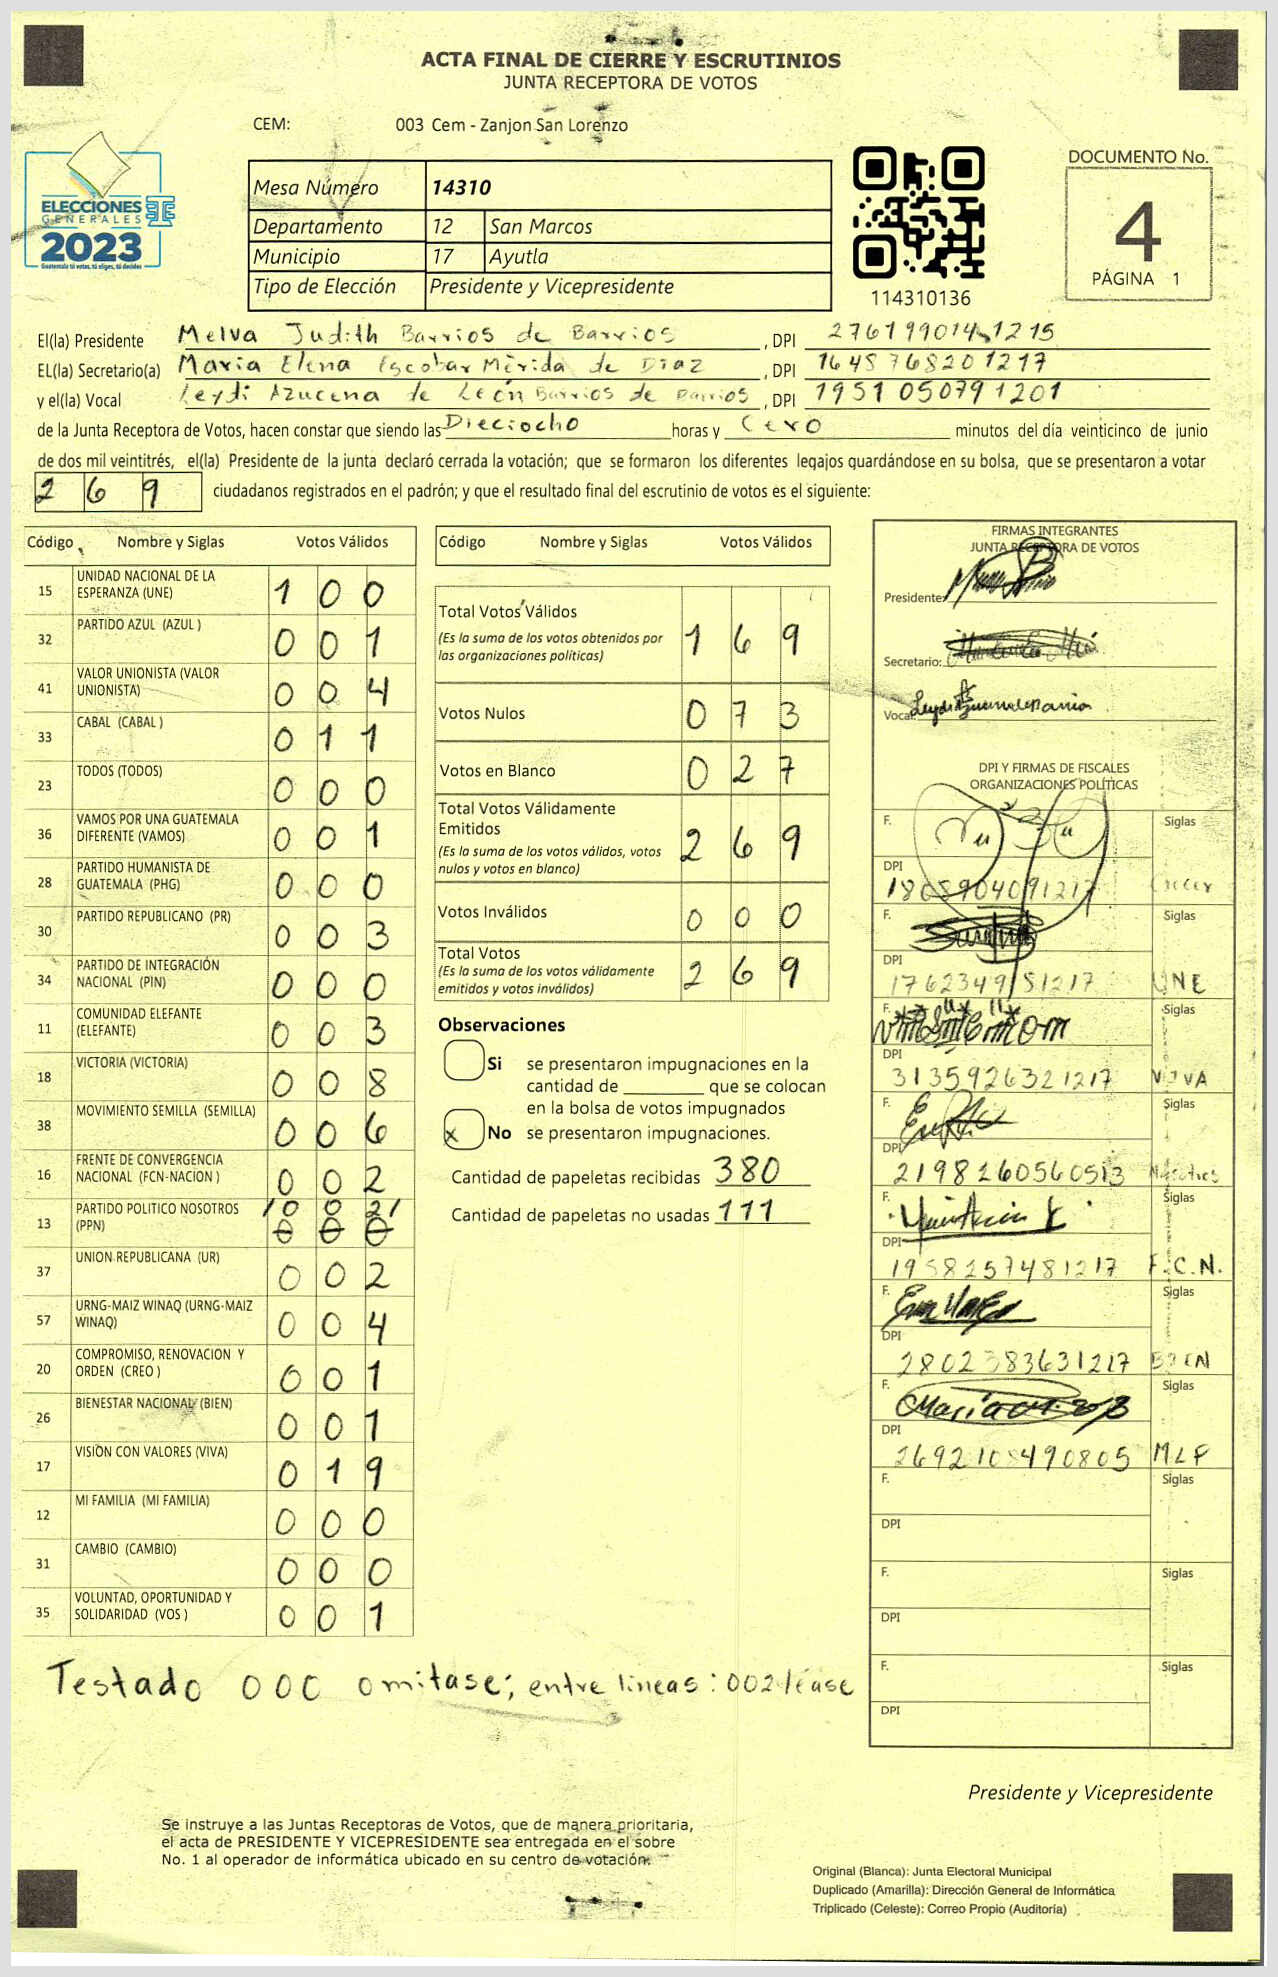 ACTA FINAL DE CIERRE Y ESCRUTINIOS
JUNTA RECEPTORA DE VOTOS
CEM: 003 Cem - Zanjon San Lorenzo
ELECCIONES
GENERALES
2023
Guatemala tú votas, tú eliges, tú decides
Mesa Número 14310
Departamento 12 San Marcos
Municipio 17 Ayutla
Tipo de Elección Presidente y Vicepresidente
114310136
DOCUMENTO No.
4
PÁGINA 1
El(la) Presidente Melva Judith Barrios de Barrios, DPI 2761990141215
EL(la) Secretario(a) Maria Elena Escobar Mérida de Diaz, DPI 1648768201217
y el(la) Vocal Leydi Azucena de León Barrios de Barrios, DPI 1951050791201
de la Junta Receptora de Votos, hacen constar que siendo las Dieciocho horas y Cero minutos del día veinticinco de junio
de dos mil veintitrés, el(la) Presidente de la junta declaró cerrada la votación; que se formaron los diferentes legajos guardándose en su bolsa, que se presentaron a votar
269 ciudadanos registrados en el padrón; y que el resultado final del escrutinio de votos es el siguiente:
Código Nombre y Siglas Votos Válidos
15 UNIDAD NACIONAL DE LA ESPERANZA (UNE) 1 0 0
32 PARTIDO AZUL (AZUL ) 0 0 1
41 VALOR UNIONISTA (VALOR UNIONISTA) 0 0 4
33 CABAL (CABAL ) 0 1 1
23 TODOS (TODOS) 0 0 0
36 VAMOS POR UNA GUATEMALA DIFERENTE (VAMOS) 0 0 1
28 PARTIDO HUMANISTA DE GUATEMALA (PHG) 0 0 0
30 PARTIDO REPUBLICANO (PR) 0 0 3
34 PARTIDO DE INTEGRACIÓN NACIONAL (PIN) 0 0 0
11 COMUNIDAD ELEFANTE (ELEFANTE) 0 0 3
18 VICTORIA (VICTORIA) 0 0 8
38 MOVIMIENTO SEMILLA (SEMILLA) 0 0 6
16 FRENTE DE CONVERGENCIA NACIONAL (FCN-NACION ) 0 0 2
13 PARTIDO POLITICO NOSOTROS (PPN) /0 0 2/ 0 0 0
37 UNION REPUBLICANA (UR) 0 0 2
57 URNG-MAIZ WINAQ (URNG-MAIZ WINAQ) 0 0 4
20 COMPROMISO, RENOVACION Y ORDEN (CREO ) 0 0 1
26 BIENESTAR NACIONAL (BIEN) 0 0 1
17 VISION CON VALORES (VIVA) 0 1 9
12 MI FAMILIA (MI FAMILIA) 0 0 0
31 CAMBIO (CAMBIO) 0 0 0
35 VOLUNTAD, OPORTUNIDAD Y SOLIDARIDAD (VOS ) 0 0 1
Código Nombre y Siglas Votos Válidos
Total Votos Válidos 1 6 9
(Es la suma de los votos obtenidos por
las organizaciones políticas)
Votos Nulos 0 7 3
Votos en Blanco 0 2 7
Total Votos Válidamente
Emitidos 2 6 9
(Es la suma de los votos válidos, votos
nulos y votos en blanco)
Votos Inválidos 0 0 0
Total Votos 2 6 9
(Es la suma de los votos válidamente
emitidos y votos inválidos)
Observaciones
Si se presentaron impugnaciones en la
cantidad de ________ que se colocan
en la bolsa de votos impugnados
x No se presentaron impugnaciones.
Cantidad de papeletas recibidas 380
Cantidad de papeletas no usadas 111
FIRMAS INTEGRANTES
JUNTA RECEPTORA DE VOTOS
Presidente:
Secretario:
Vocal:
DPI Y FIRMAS DE FISCALES
ORGANIZACIONES POLÍTICAS
F. Siglas
DPI
F. Siglas
DPI UNE
F. Siglas
DPI 3135926321217 VIVA
F. Siglas
DPI 2198260560513 Nosotros
F. Siglas
DPI 1958257481217 F.C.N.
F. Siglas
DPI 2802383631217 BIEN
F. Siglas
DPI 2692108490805 MLP
F. Siglas
DPI
F. Siglas
DPI
F. Siglas
DPI
Testado 000 omitase; entre lineas: 002 léase
Presidente y Vicepresidente
Se instruye a las Juntas Receptoras de Votos, que de manera prioritaria,
el acta de PRESIDENTE Y VICEPRESIDENTE sea entregada en el sobre
No. 1 al operador de informática ubicado en su centro de votación.
Original (Blanca): Junta Electoral Municipal
Duplicado (Amarilla): Dirección General de Informática
Triplicado (Celeste): Correo Propio (Auditoría)